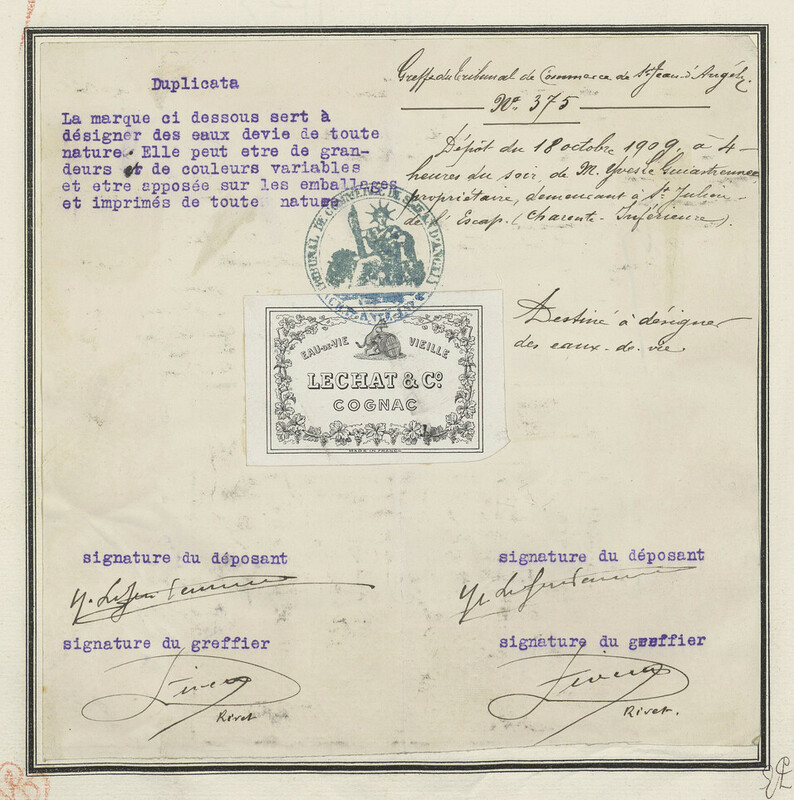 Duplicata
La marque ci dessous sert à
désigner des eaux devie de toute
nature. Elle peut etre de gran-
deurs et de couleurs variables
et etre apposée sur les emballages
et imprimés de toute nature
Greffe du Tribunal de Commerce de St Jean d'Angély.
No. 375
Dépôt du 18 octobre 1909, à 4
heures du soir, de M. Yves Le Guiastrennec
propriétaire, demeurant à St. Julien
de l'Escap. (Charente-Inférieure).
TRIBUNAL DE COMMERCE DE ST JEAN D'ANGELY
Destiné à désigner
des eaux-de-vie
EAU-DE-VIE VIEILLE
LECHAT & Co.
COGNAC
MADE IN FRANCE
signature du déposant
signature du greffier
Rivet
signature du déposant
signature du greffier
Rivet.